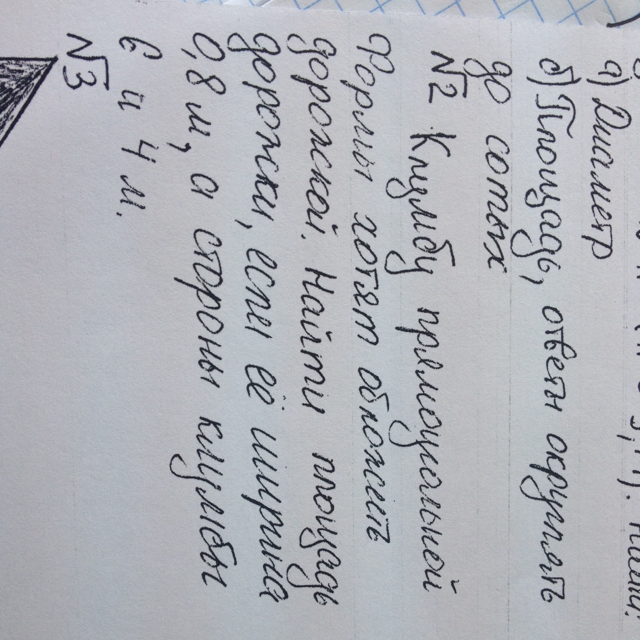 а) Диаметр
б) Площадь, ответы округлять
до сотых
№2 Клумбу прямоугольной
формы хотят обложить
дорожкой. Найти площадь
дорожки, если её ширина
0,8 м, а стороны клумбы
6 и 4 м.
№3